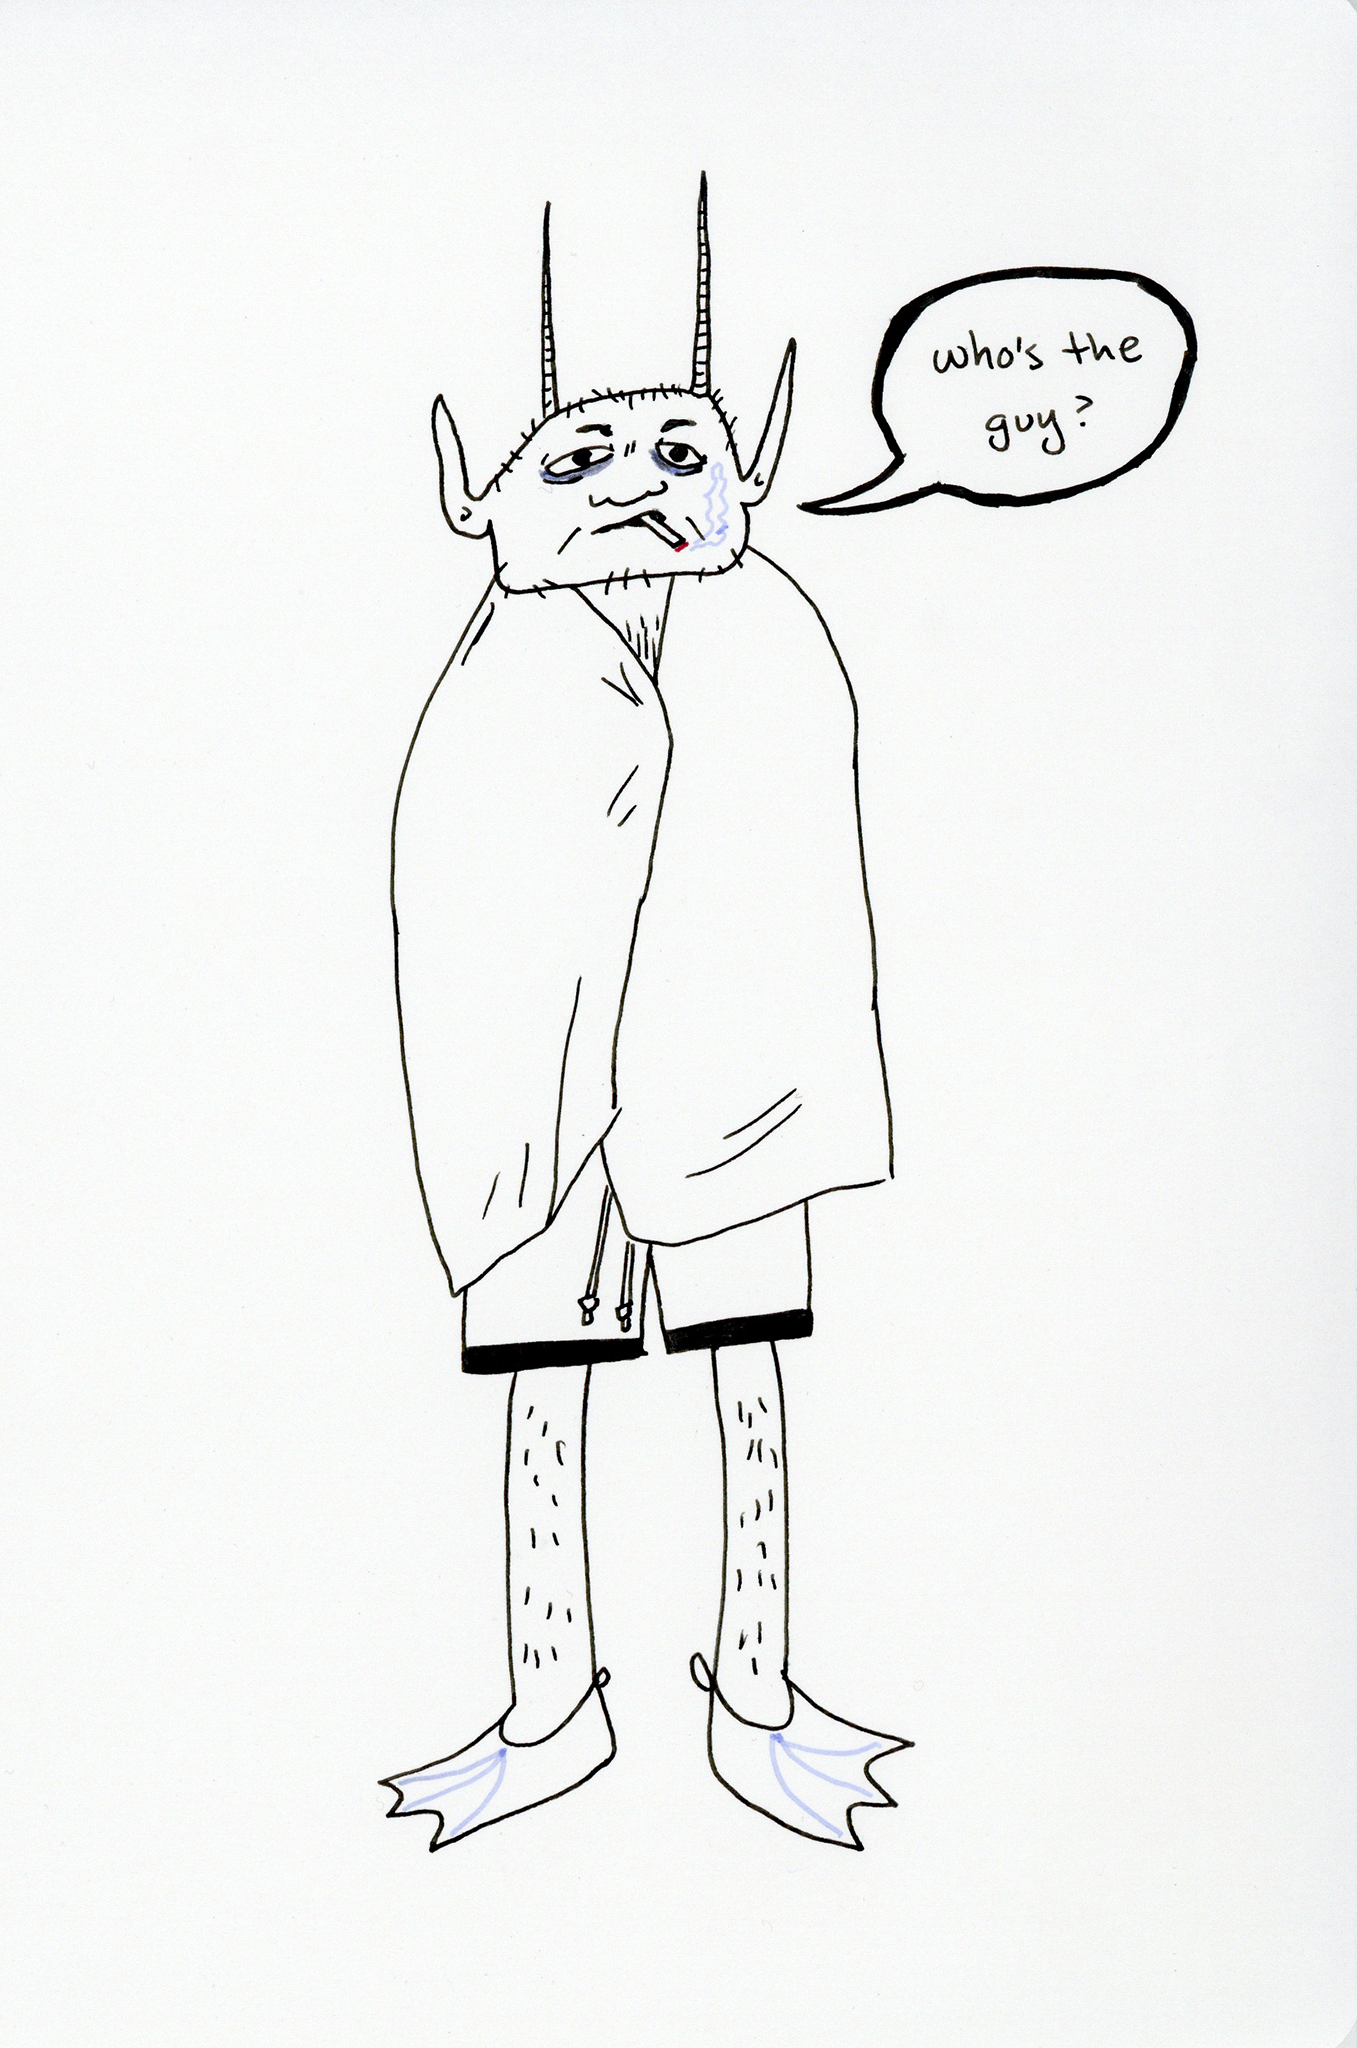 who's the
guy?